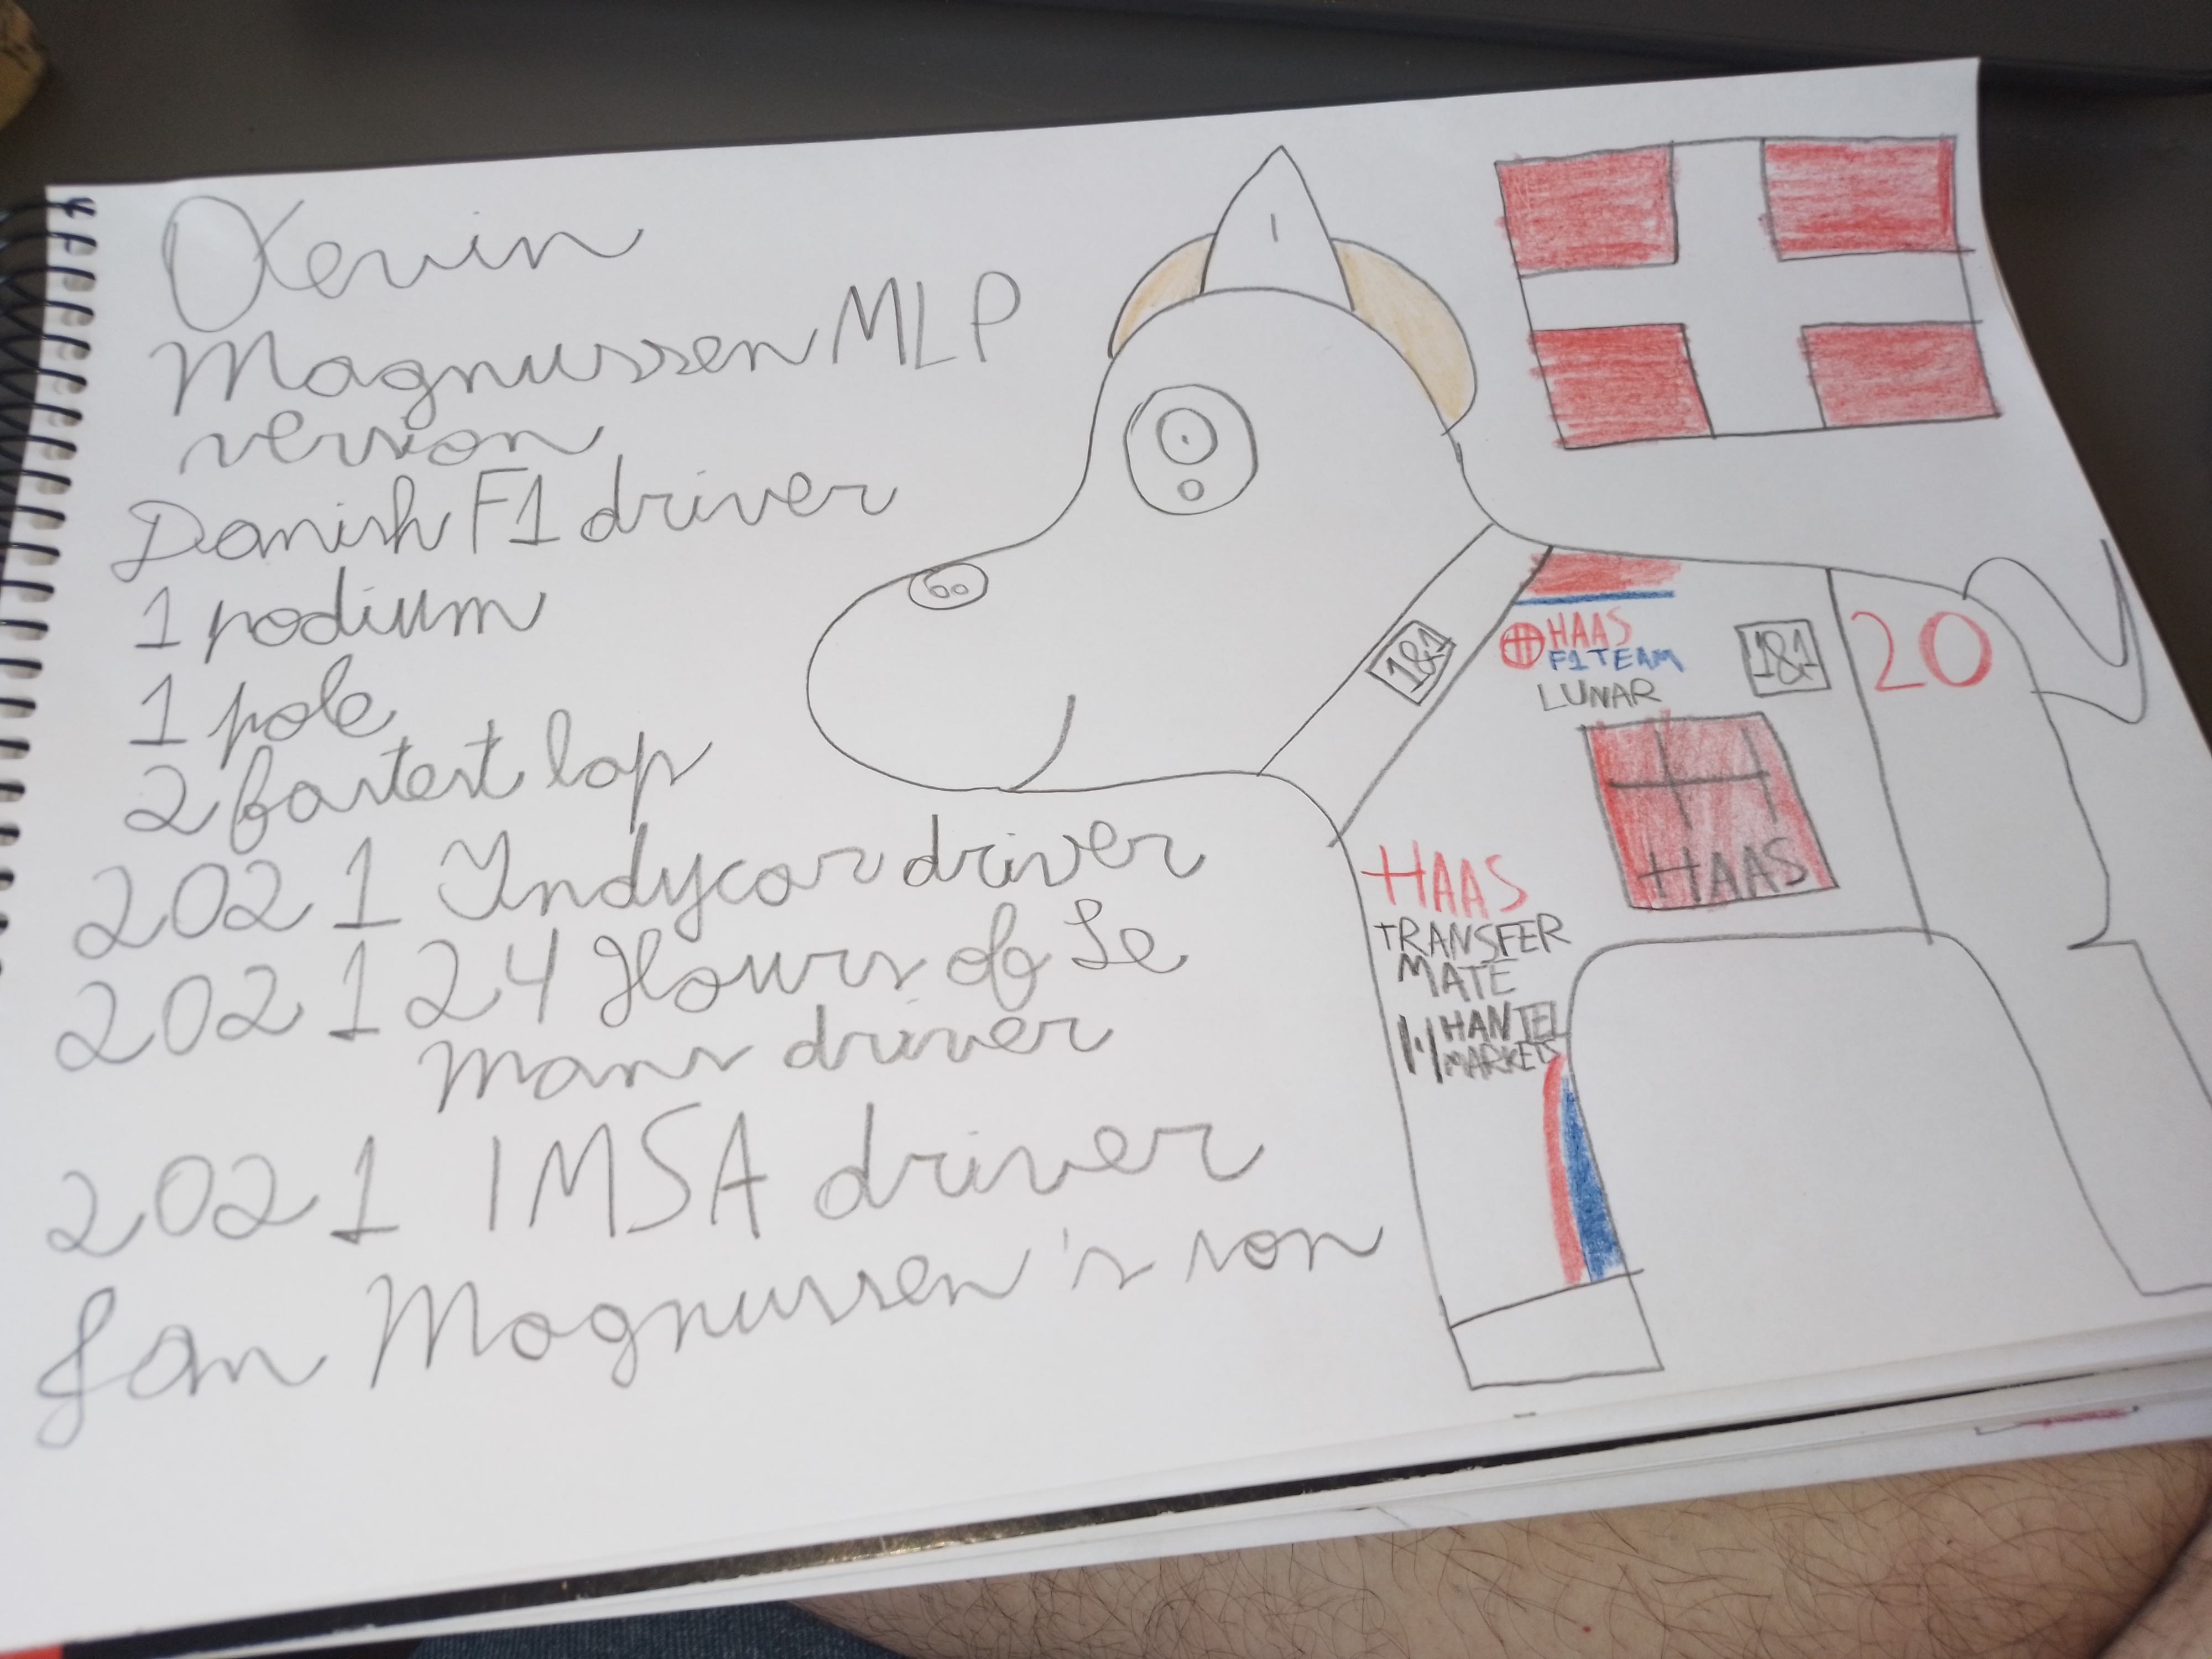 Kevin
Magnussen MLP
version
Danish F1 driver
1 podium
1 pole
2 fastest lap
2021 Indycar driver
2021 24 Hours of Le
Mans driver
2021 IMSA driver
Jan Magnussen's son
1&1
HAAS
F1 TEAM
LUNAR
1&1
20
HAAS
HAAS
TRANSFER
MATE
HANTEL
MARKETS